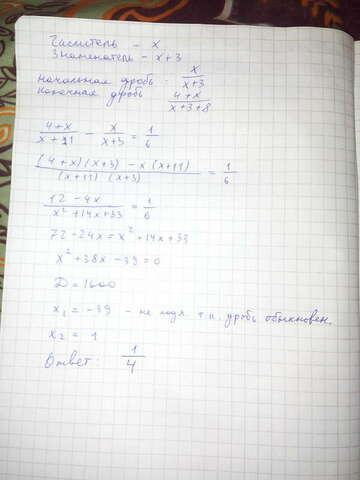 Числитель - x
Знаменатель - x+3
начальная дробь: x/(x+3)
конечная дробь (4+x)/(x+3+8)
(4+x)/(x+11) - x/(x+3) = 1/6
((4+x)(x+3) - x(x+11))/((x+11)(x+3)) = 1/6
(12-4x)/(x²+14x+33) = 1/6
72-24x=x²+14x+33
x²+38x-39=0
D=1600
x₁=-39 - не подх. т.к. дробь обыкновен.
x₂ = 1
Ответ: 1/4